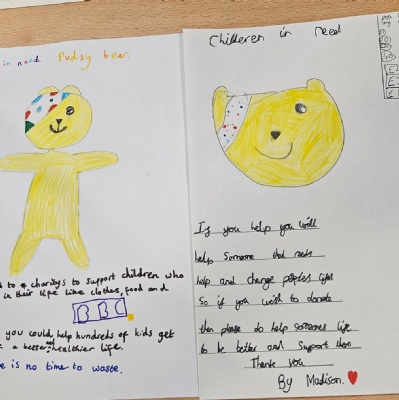 in need.   Pudsy bear.
s to 4 charitys to support children who
in their life like clothes, food and
BBC
you could help hundreds of kids get
a better and healthier life.
e is no time to waste.
Children in need
If you help you will
help someone that needs
help and change peoples lifes
So if you wish to donate
then please do help someones life
to be better and support them
Thank you
By Madison.